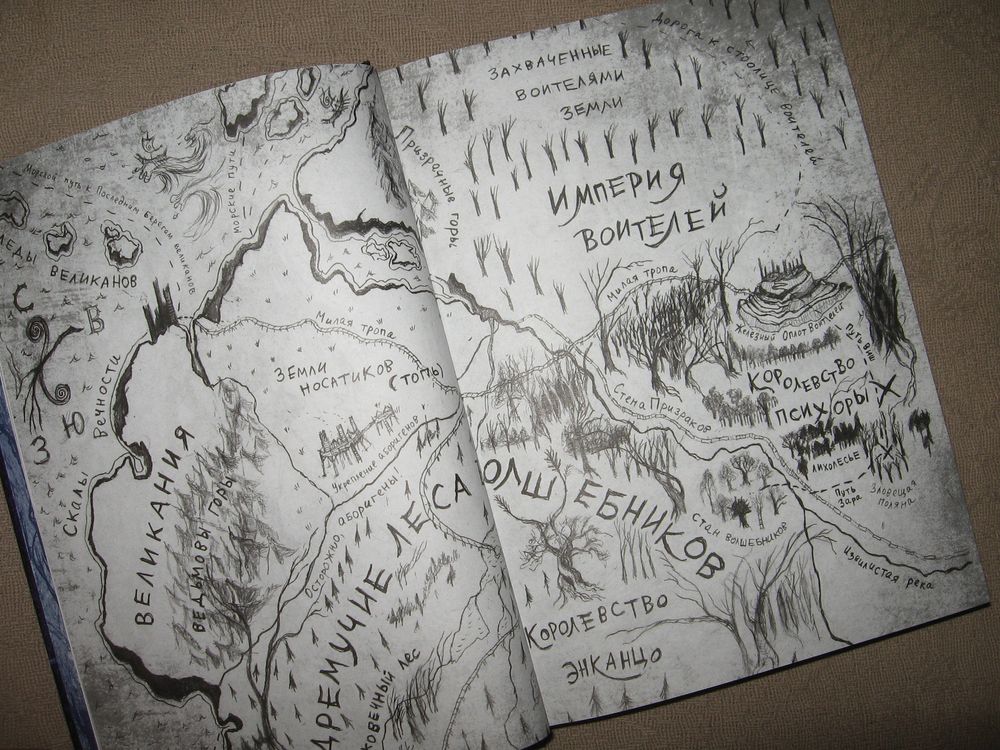 Морской путь к Последнему берегу великанов
морские пути
ЛЕДЫ ВЕЛИКАНОВ
С
В
З
Ю
Скалы
Вечности
ВЕЛИКАНИЯ
ВЕДЬМОВЫ ГОРЫ
Милая тропа
ЗЕМЛИ
НОСАТИКОВ (ТОПЬ)
Укрепление аборигенов
Осторожно, аборигены!
ДРЕМУЧИЕ ЛЕСА
ВОЛШЕБНИКОВ
Призрачные горы
ЗАХВАЧЕННЫЕ
ВОИТЕЛЯМИ
ЗЕМЛИ
Дорога к столице воителей
ИМПЕРИЯ
ВОИТЕЛЕЙ
Милая тропа
Железный Оплот Воителей
КОРОЛЕВСТВО
ПСИХОРЫ
Х
Стена Призраков
ЛИХОЛЕСЬЕ
Х
Путь
Зара
Зловещая
поляна
СТАН ВОЛШЕБНИКОВ
Извилистая река
КОРОЛЕВСТВО
ЭНКАНЦО